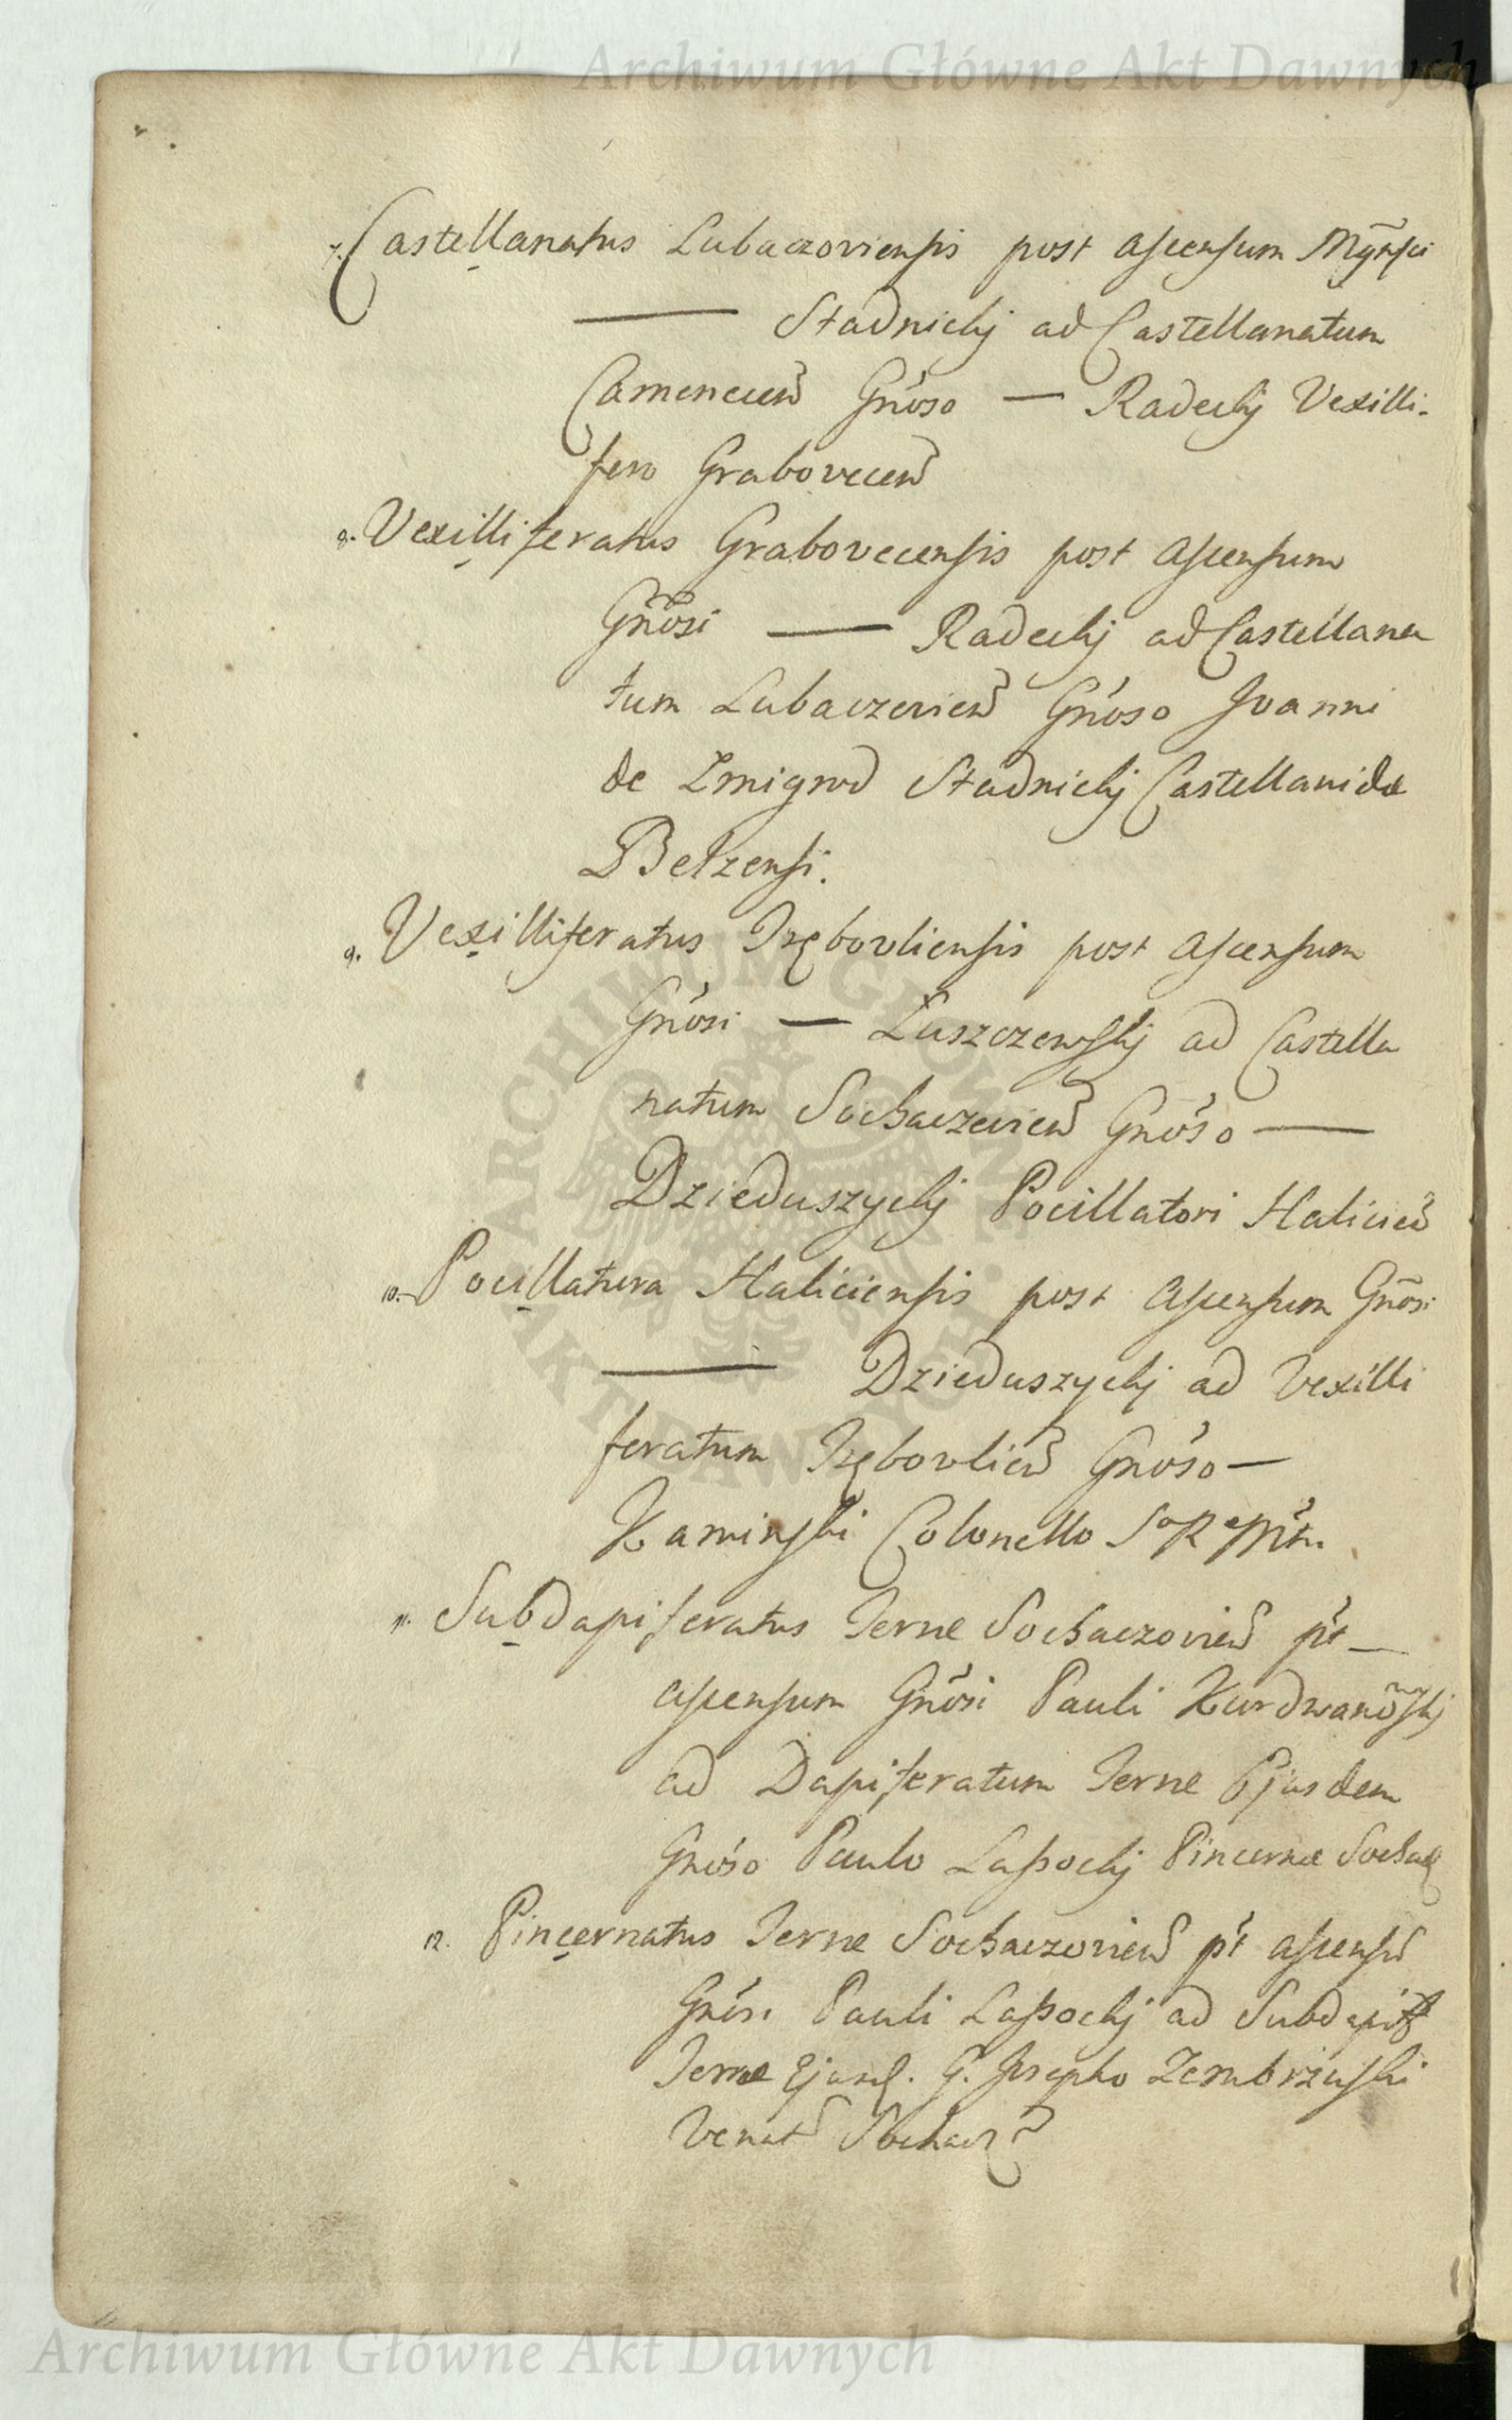 Archiwum Główne Akt Dawnych
7. Castellanatus Lubaczoviensis post ascensum Mgñfci
— Stadnickj ad Castellanatum
Camenecen̄ Gnõso — Radeckj Vexilli-
fero Grabovecen̄
8. Vexilliferatus Grabovecensis post ascensum
Gnõsi — Radeckj ad Castellana
tum Lubaczovien̄ Gnõso Joanni
de Zmigrod Stadnickj Castellanidæ
Bełzensi.
9. Vexilliferatus Trębovliensis post ascensum
Gnõsi — Łuszczewskj ad Castella
natum Sochaczevien̄ Gnõso —
Dzieduszyckj Pocillatori Halicien̄
10. Pocillatura Haliciensis post ascensum Gnõsi
— Dzieduszyckj ad Vexilli
feratum Trębovlien̄ Gnõso —
Kaminski Colonello S R M
11. Subdapiferatus Terræ Sochaczovien̄ pt̃ —
ascensum Gnõsi Pauli Kurdwanowskj
ad Dapiferatum Terræ Ejusdem
Gnõso Paulo Lassockj Pincernæ Sochacz
12. Pincernatus Terræ Sochaczovien̄ pt̃ ascensũ
Gnõsi Pauli Lassockj ad Subdapif
Terræ Ejusd. G. Josepho Zembrzuski
Venat Sochacz
ARCHIWUM GŁÓWNE AKT DAWNYCH
Archiwum Główne Akt Dawnych